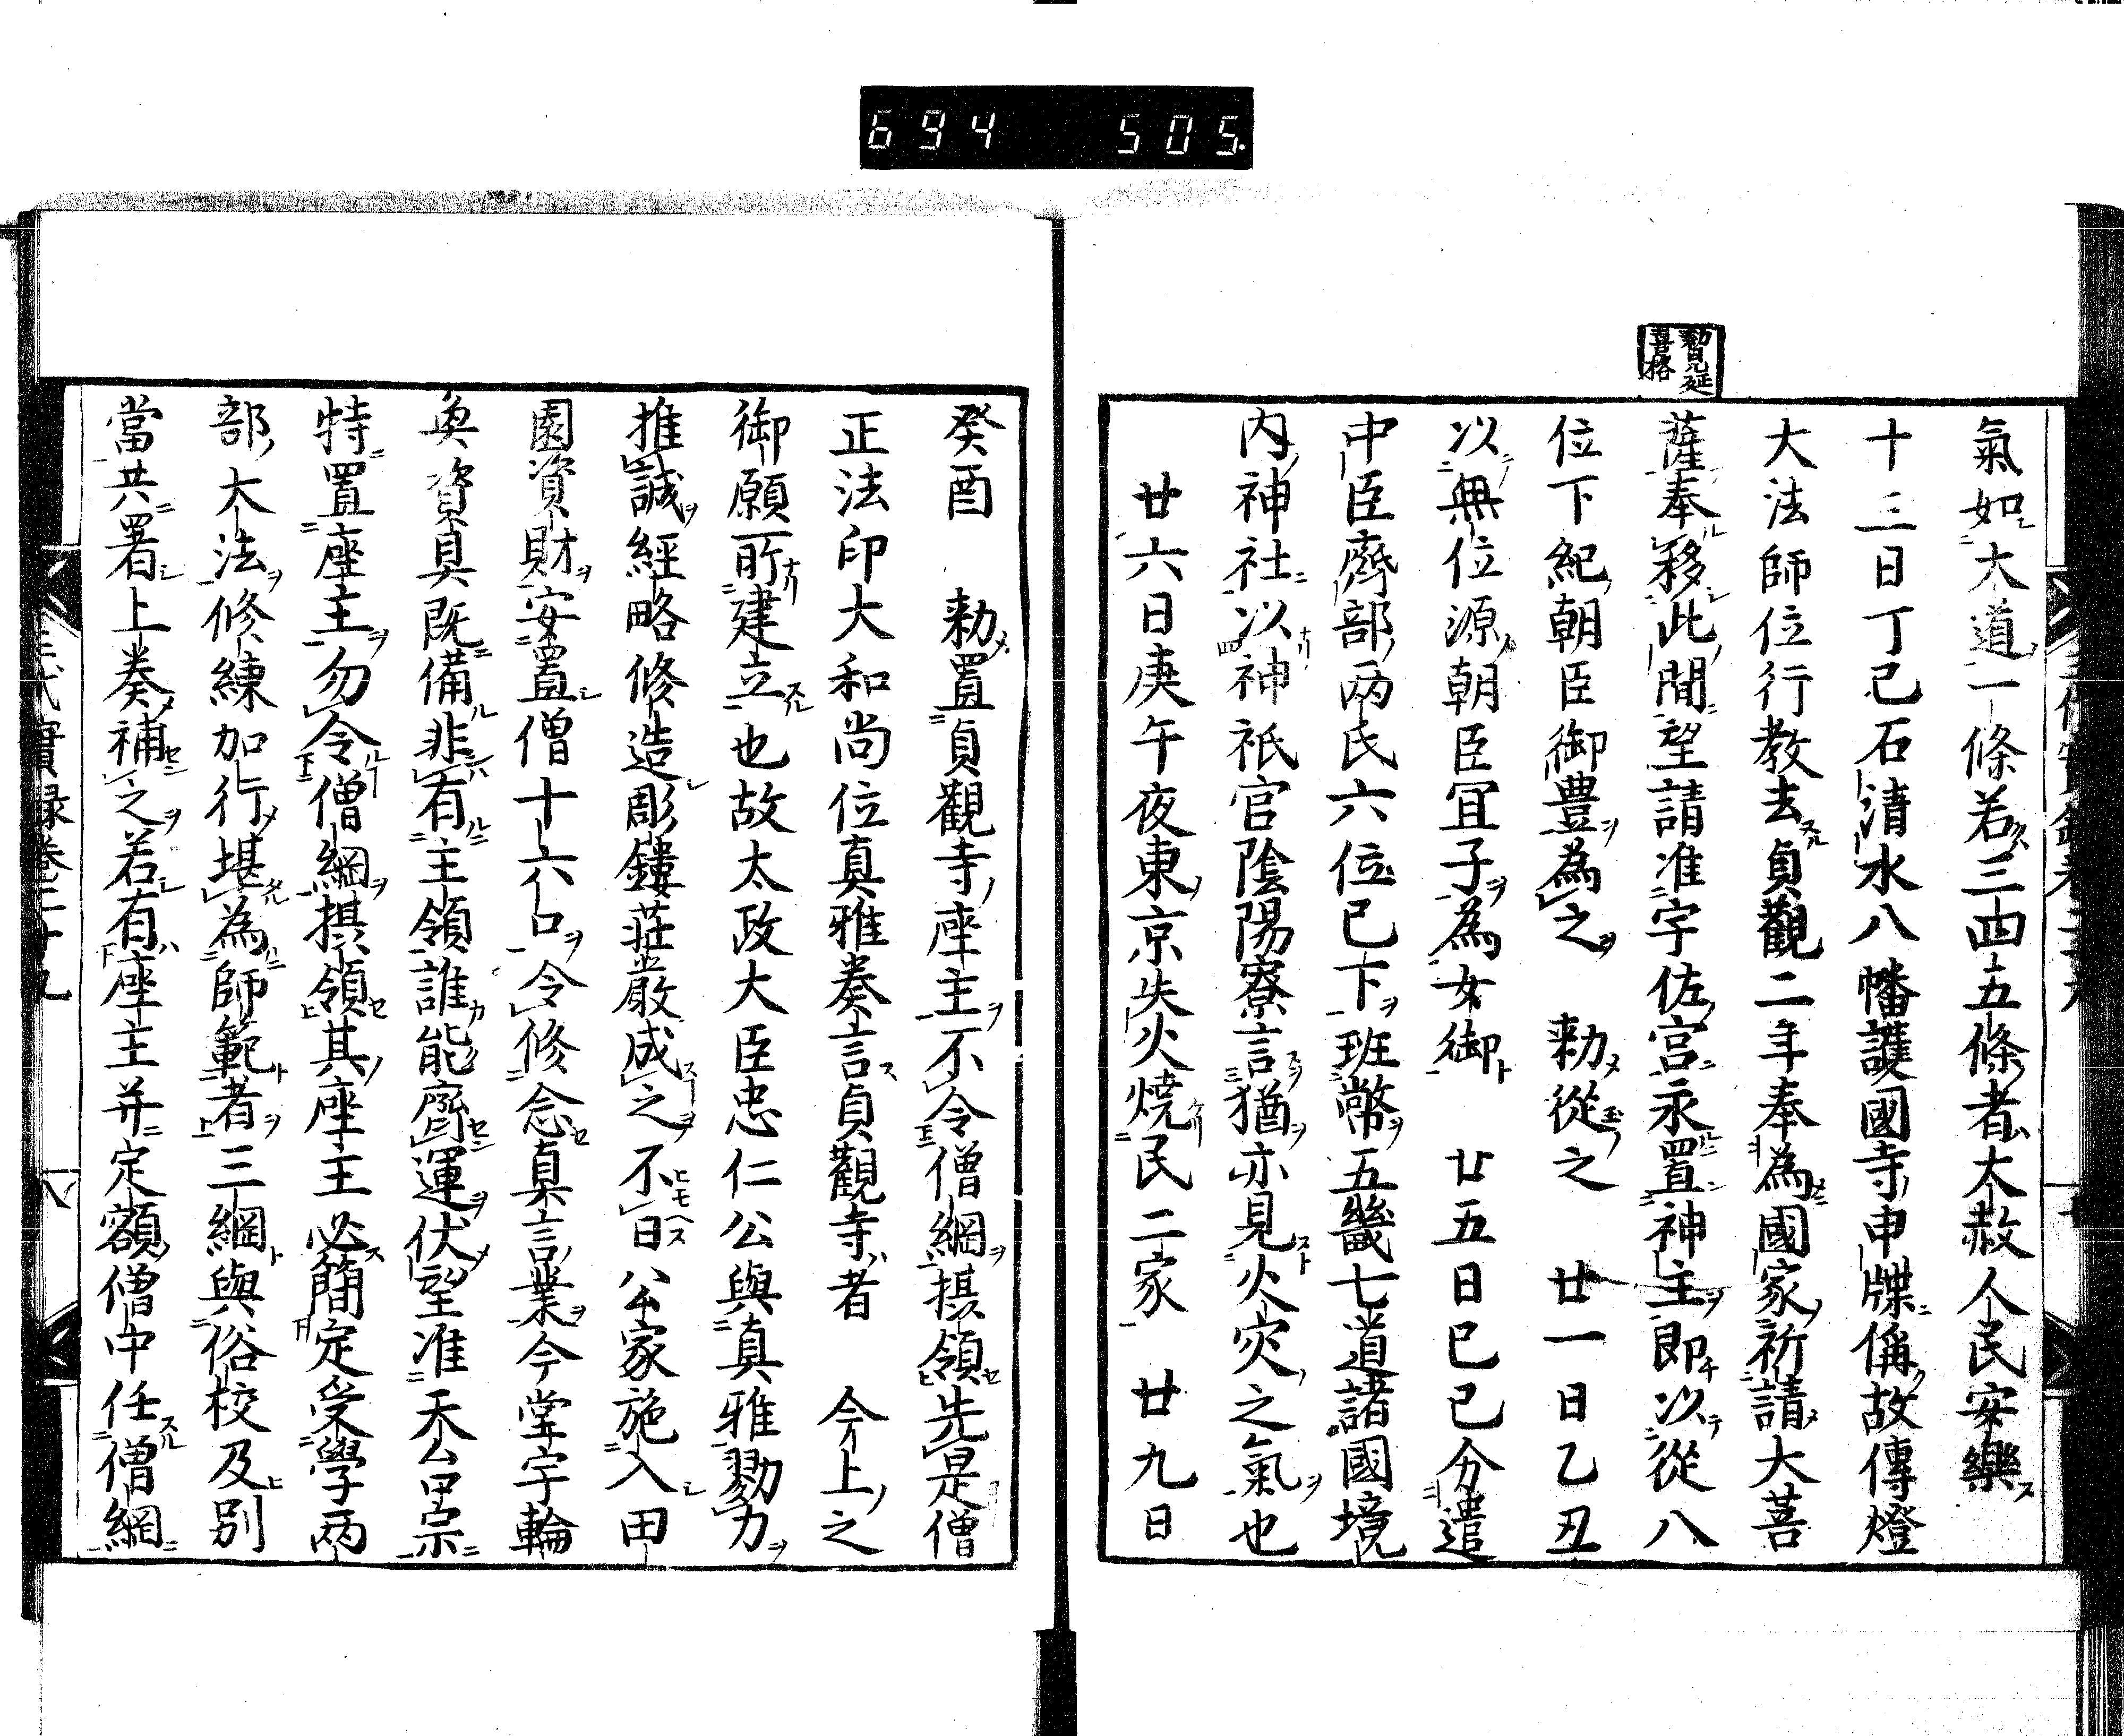 694 505.
勅見延
喜格
氣如大道一條若三四五條者太赦人民安樂
十三日丁巳石清水八幡護國寺申牒偁故傳燈
大法師位行教去貞觀二年奉為國家祈請大菩
薩奉移此間望請准宇佐宮永置神主即以從八
位下紀朝臣御豊為之　勅從之　廿一日乙丑
以無位源朝臣冝子為女御　廿五日己巳分遣
中臣齊部兩氏六位已下班幣五畿七道諸國境
内神社以神祇官陰陽寮言猶亦見火灾之氣也
廿六日庚午夜東京失火燒民二家　廿九日
癸酉　勅置貞觀寺座主不令僧綱摂領先是僧
正法印大和尚位真雅奏言貞觀寺者　今上之
御願所建立也故太政大臣忠仁公與真雅勠力
推誠經略修造彫鏤莊嚴成之不日公家施入田
園資財安置僧十六口令修念真言業今堂宇輪
奐資具既備非有主領誰能齊運伏望准天台宗
特置座主勿令僧綱摂領其座主必簡定受學兩
部大法修練加行堪為師範者三綱與俗校及別
當共署上奏補之若有座主并定額僧中任僧綱